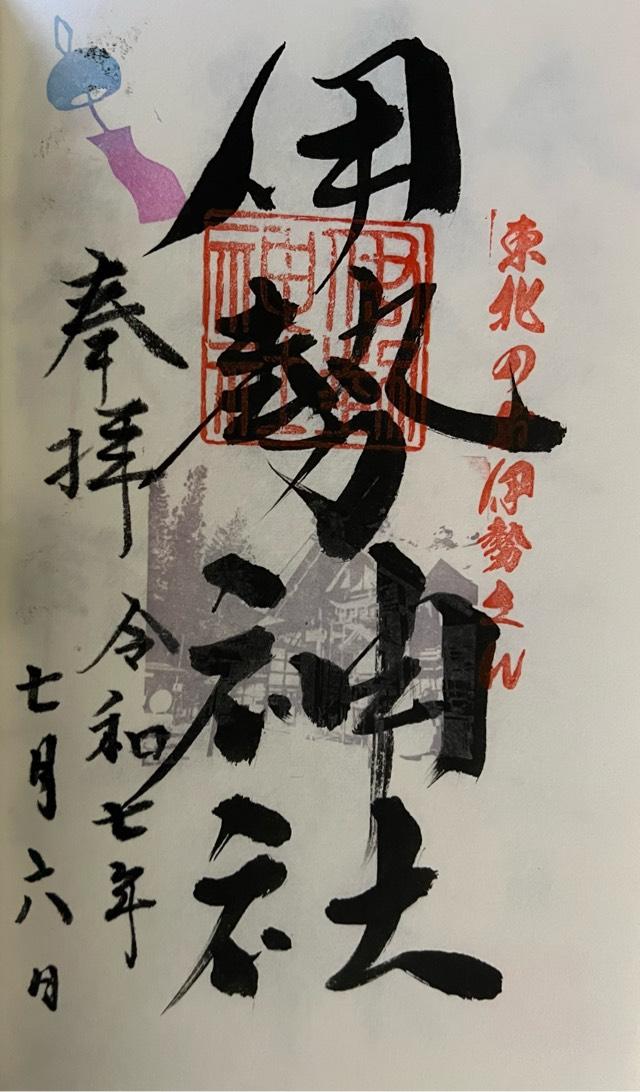 東北のお伊勢さん
伊勢神社
伊勢神社
奉拝
令和七年
七月六日